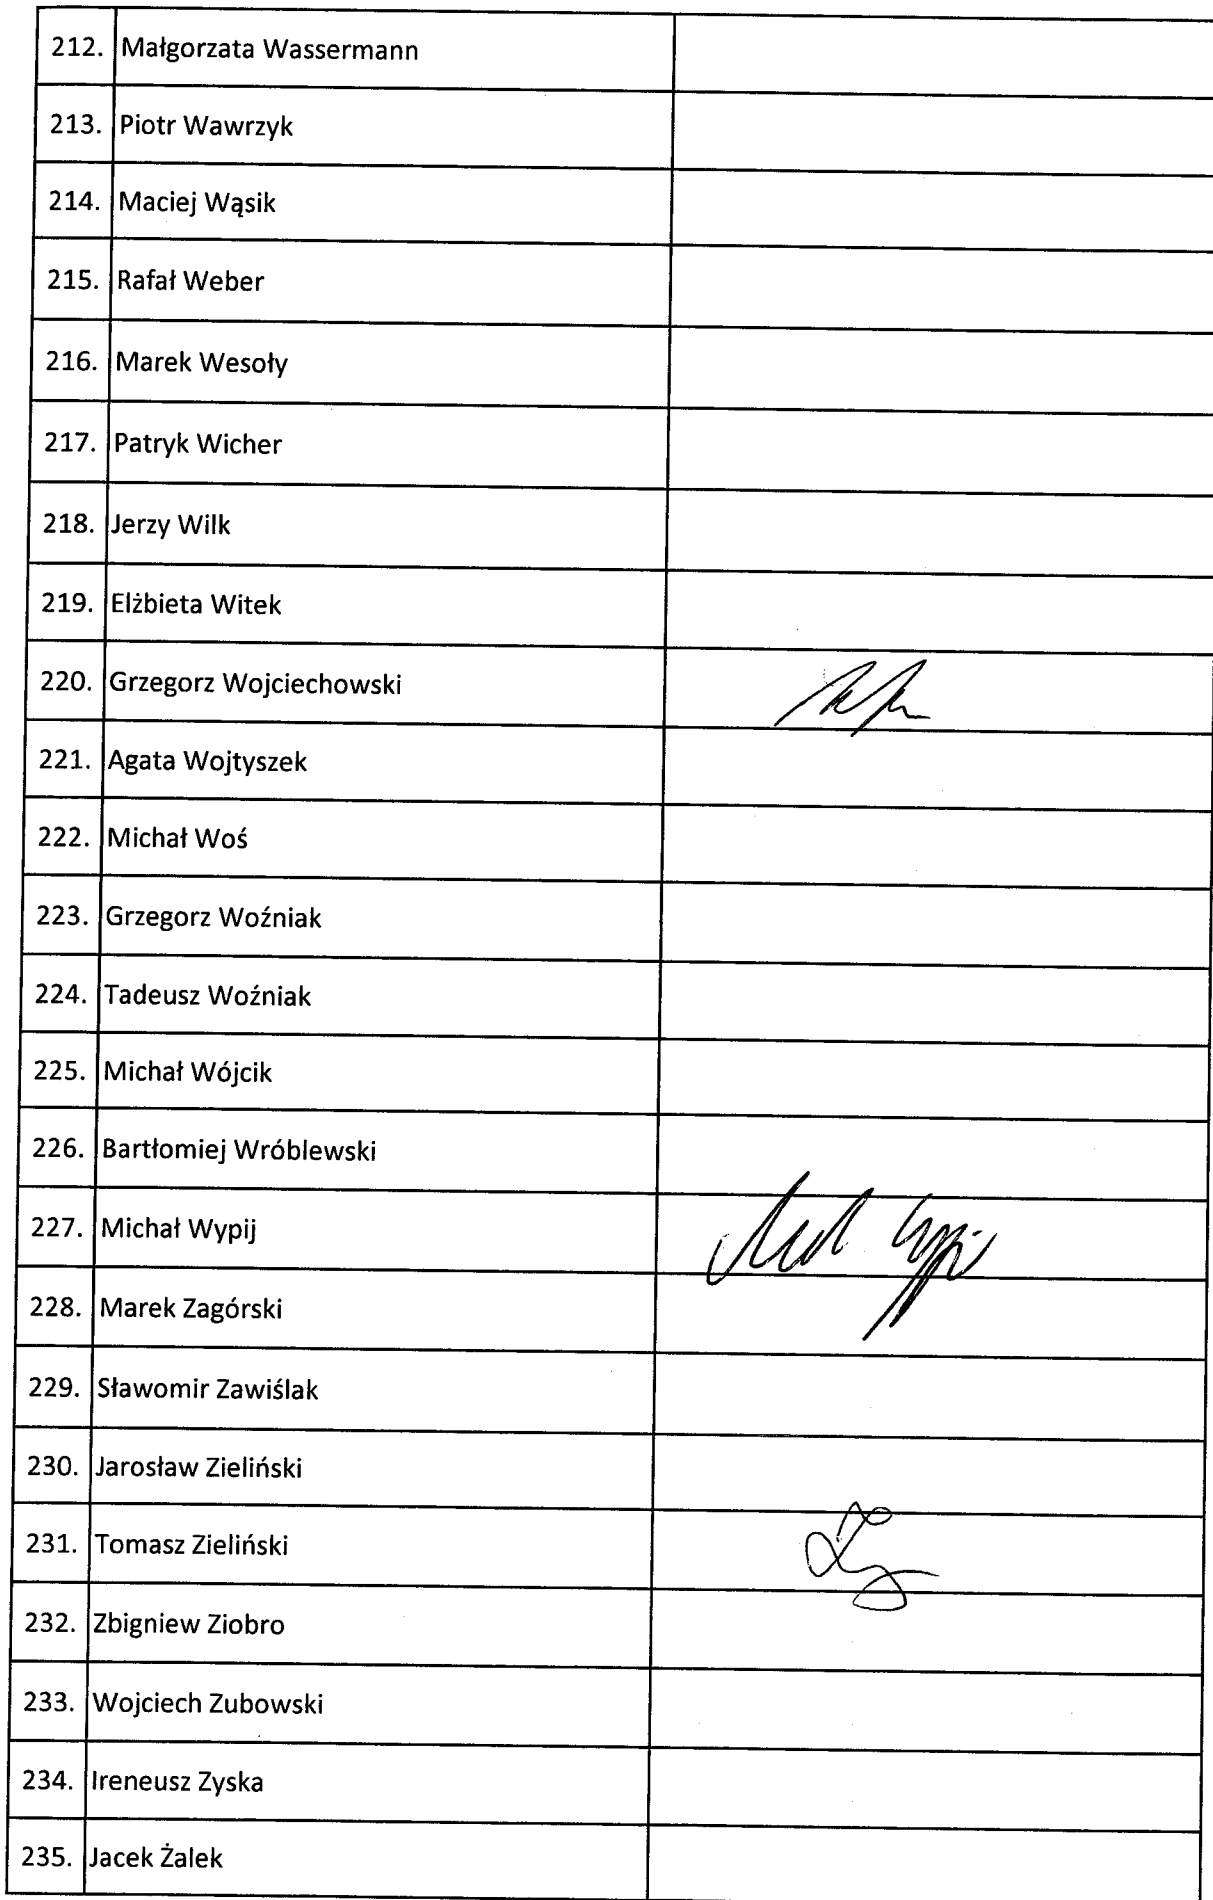 212. Małgorzata Wassermann
213. Piotr Wawrzyk
214. Maciej Wąsik
215. Rafał Weber
216. Marek Wesoły
217. Patryk Wicher
218. Jerzy Wilk
219. Elżbieta Witek
220. Grzegorz Wojciechowski
221. Agata Wojtyszek
222. Michał Woś
223. Grzegorz Woźniak
224. Tadeusz Woźniak
225. Michał Wójcik
226. Bartłomiej Wróblewski
227. Michał Wypij
228. Marek Zagórski
229. Sławomir Zawiślak
230. Jarosław Zieliński
231. Tomasz Zieliński
232. Zbigniew Ziobro
233. Wojciech Zubowski
234. Ireneusz Zyska
235. Jacek Żalek